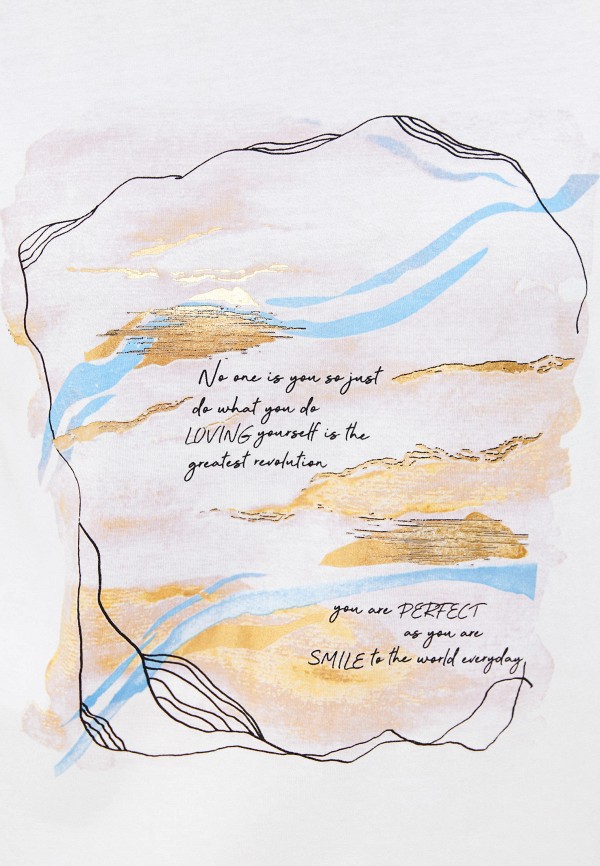 No one is you so just
do what you do
LOVING yourself is the
greatest revolution
you are PERFECT
as you are
SMILE to the world everyday